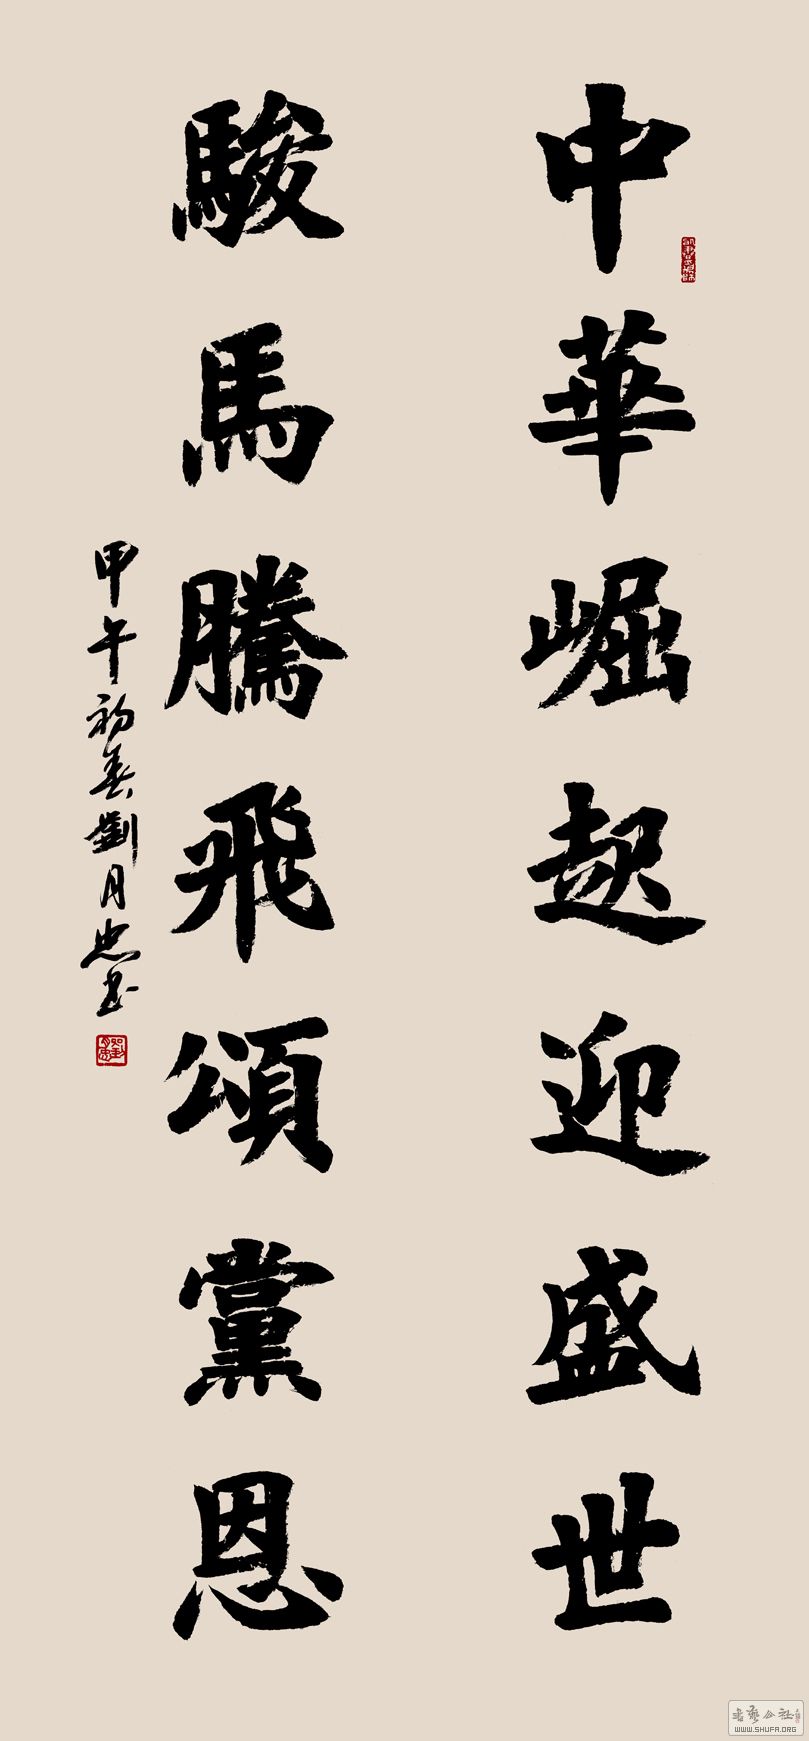 中華崛起迎盛世
駿馬騰飛頌黨恩
甲午初春劉月忠书
書藝公社
WWW.SHUFA.ORG